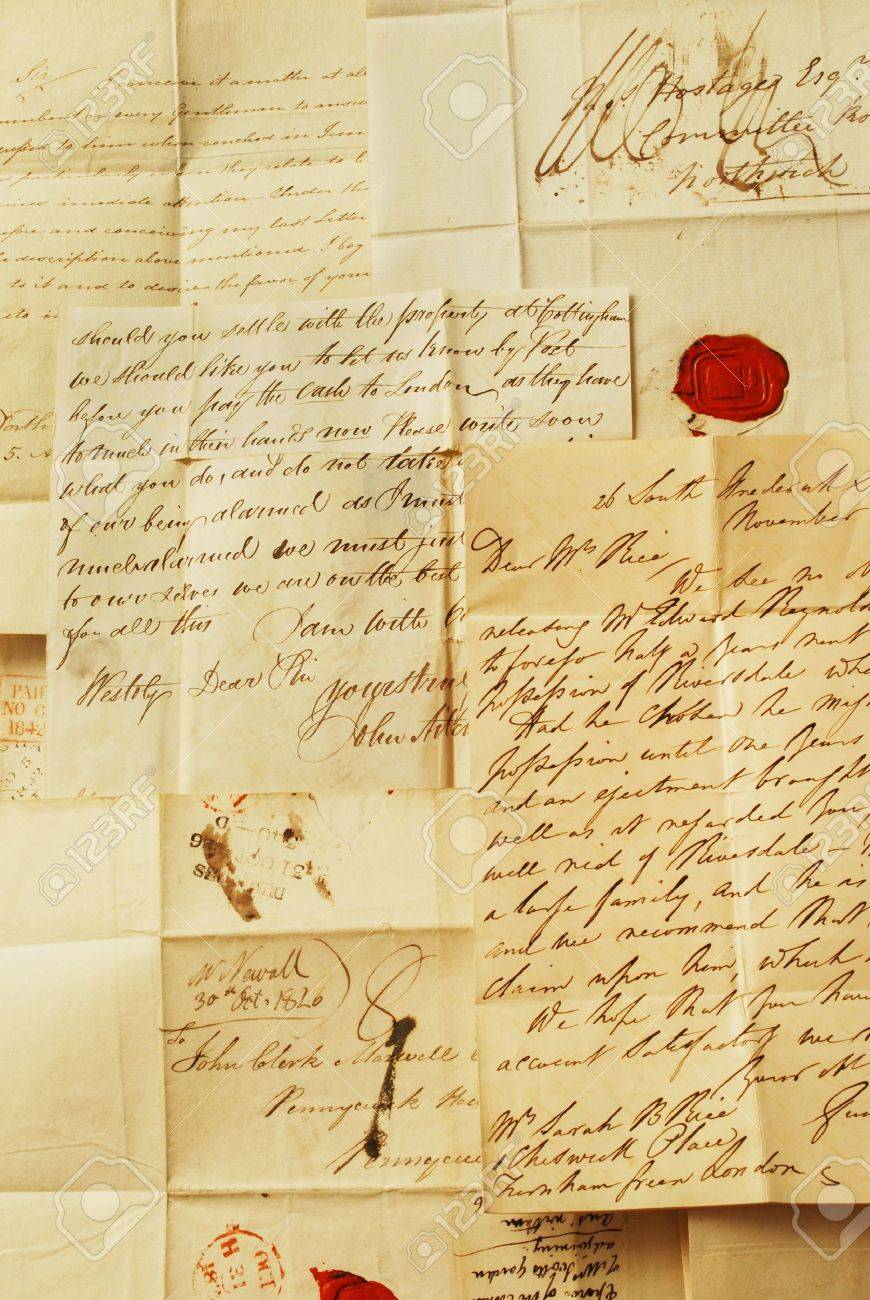 Sir conceive it a matter at al
by every Gentleman to answ
to him when couched in
particularly when they relate to
imediate attention - Under the
and conceiving my last Letter
description above mentioned, I beg
to it and to desire the favor of your
Hostage Esqr
Committee Ro
Northwich
should you settle with the property at Cottingham
we should like you to let us know by Post
before you pay the Cash to London as they have
to much in their hands now Please write soon
what you do, and do not take
of our being alarmed as I must
much alarmed we must just
to ourselves we are on the best
for all this I am with
Westby Dear Sir
yours true
John
North
5. A
PAI
NO
1842
26 South Frederick
November
Dear Mrs Rice,
We see no ob
releasing Mr Edward Reynold
half a years rent
possession of Riversdale whe
Had he chosen he mig
possession until one years
and an ejectment brought
well as it regarded you,
well rid of Riversdale -
a large family, and he is
and we recommend that
claim upon him, which
We hope that you have
account satisfactory we
Your
Mrs Sarah B Rice
1 Cheswick Place
Turnham Green London
DUMFRIES
31 OC
Mr Newall
30th Oct. 1826
To
John Clerk Maxwell
Pennycuick Hou
Pennycuic
OCT
H 31
adjoining
Garden
123RF